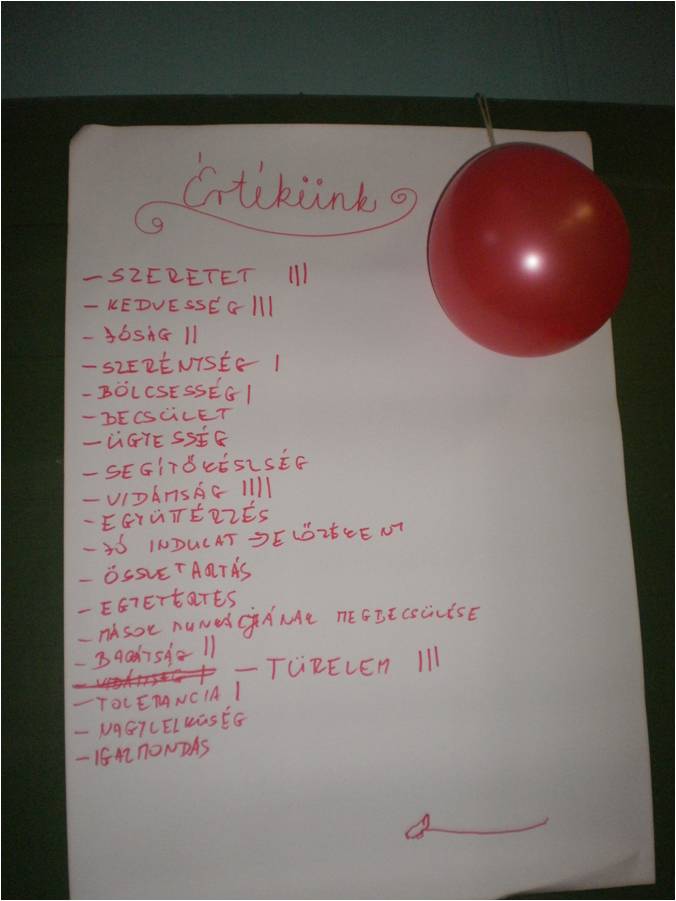 Értékeink
- SZERETET III
- KEDVESSÉG III
- JÓSÁG II
- SZERÉNYSÉG I
- BÖLCSESSÉG I
- BECSÜLET
- ÜGYESSÉG
- SEGÍTŐKÉSZSÉG
- VIDÁMSÁG IIII
- EGYÜTTÉRZÉS
- JÓ INDULAT => ELŐZÉKENY
- ÖSSZETARTÁS
- EGYETÉRTÉS
- MÁSOK MUNKÁJÁNAK MEGBECSÜLÉSE
- BARÁTSÁG II
- VIDÁMSÁG I - TÜRELEM III
- TOLERANCIA I
- NAGYLELKŰSÉG
- IGAZMONDÁS